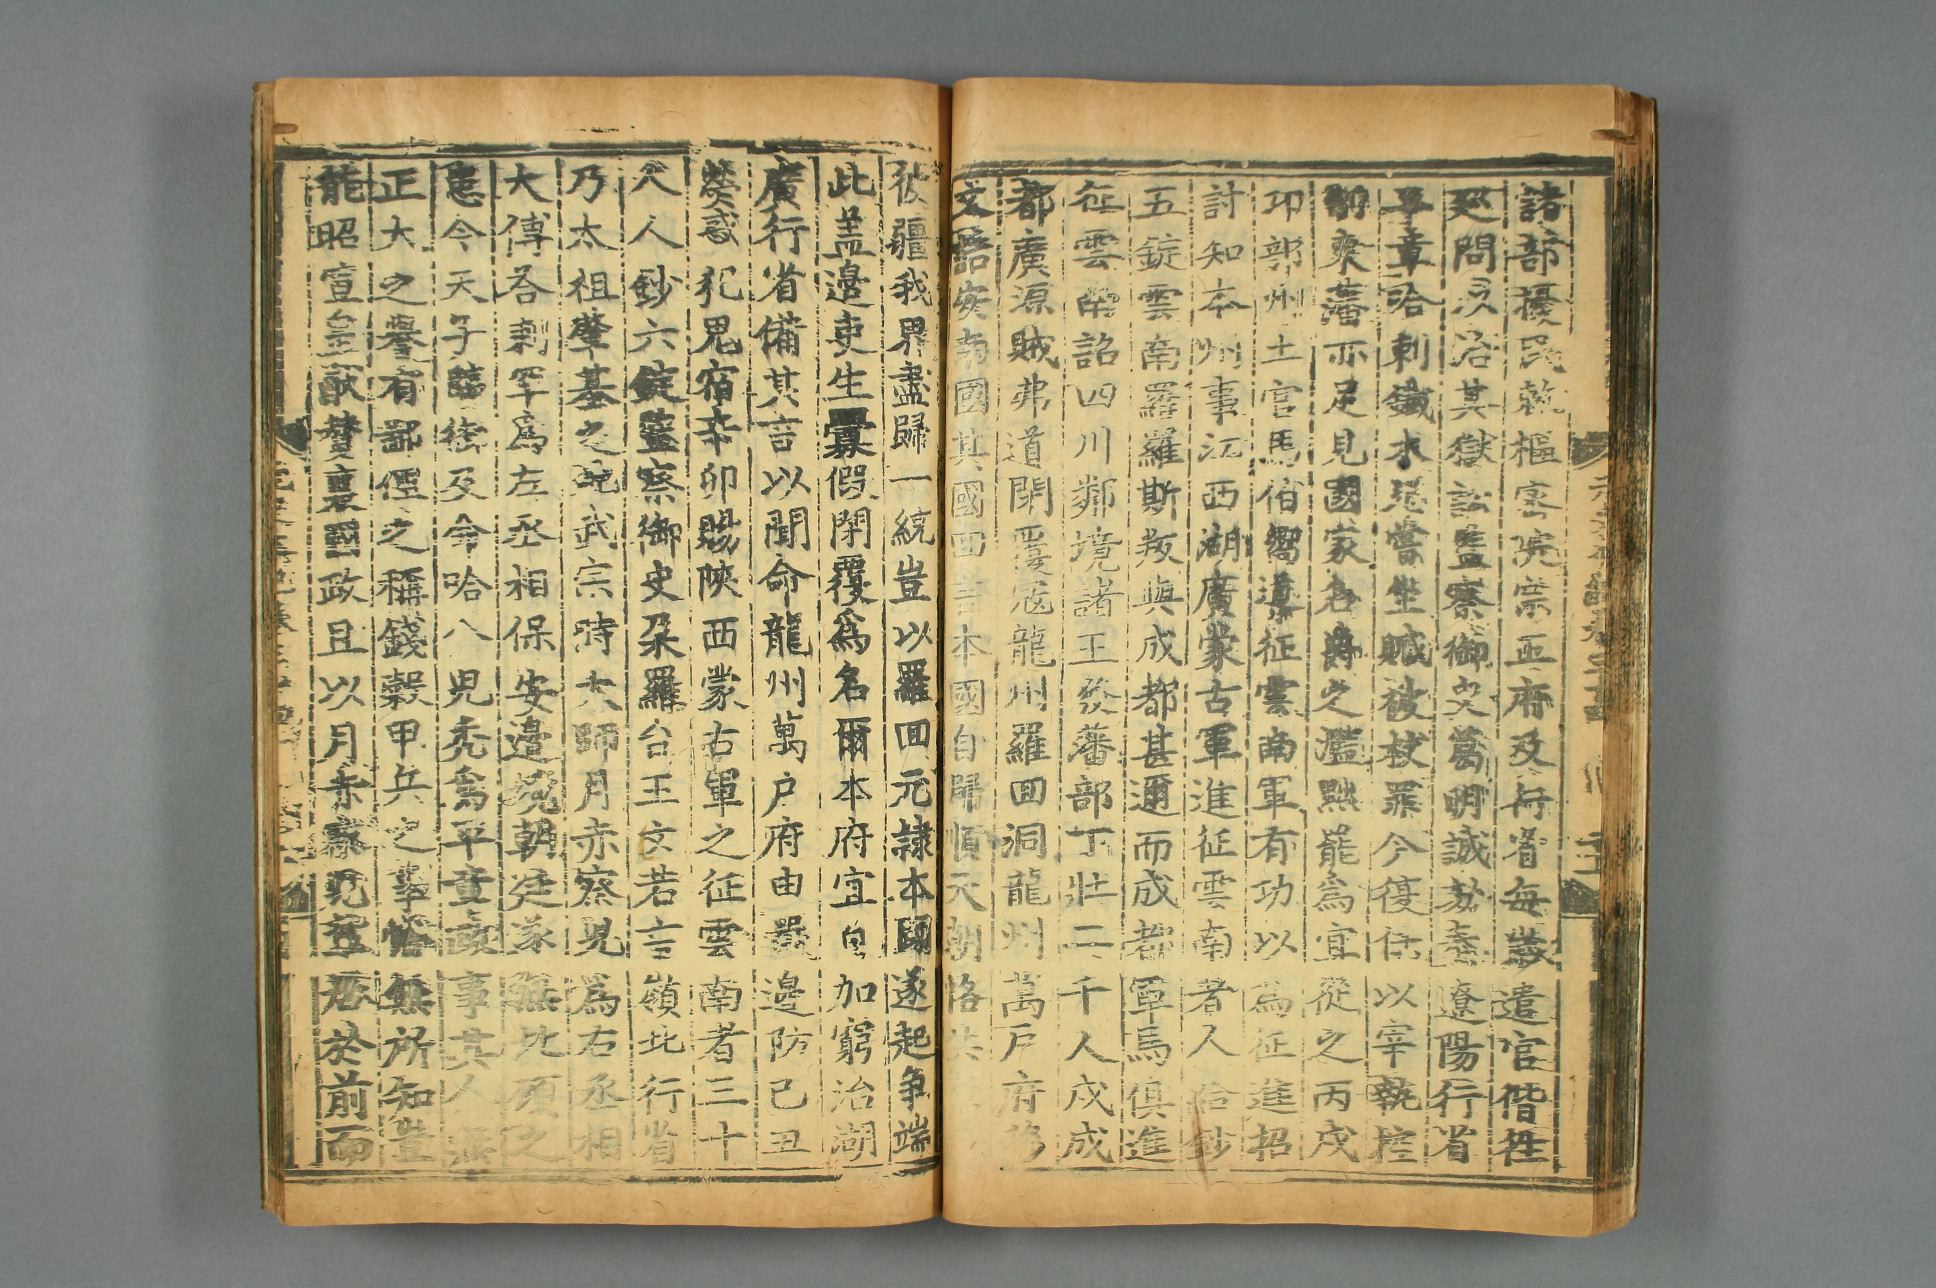 諸部擾民敕樞密院宗正府及行省每歲遣官偕往
廵問以治其獄訟監察御史葛明誠劾奏遼陽行省
平章哈剌鐵木兒嘗坐贓被杖罪今復任以宰執控
制東藩亦足見國家名爵之濫黜罷爲宜從之丙戌
卭部州土官馬伯嚮導征雲南軍有功以爲征進招
討知本州事江西湖廣蒙古軍進征雲南者人給鈔
五錠雲南羅羅斯叛與成都甚邇而成都軍馬俱進
征雲南詔四川鄰境諸王發藩部丁壯二千人戍成
都廣源賊弗道閉覆寇龍州羅回洞龍州萬戶府移
文詰安南國其國回言本國自歸順天朝恪共
彼疆我界盡歸一統豈以羅回元隷本國遂起爭端
此盖邊吏生釁假閉覆爲名爾本府宜自加窮治湖
廣行省備其言以聞命龍州萬戶府申嚴邊防己丑
熒惑犯鬼宿辛卯賜陝西蒙古軍之征雲南者三十
人人鈔六錠監察御史朶羅台王文若言嶺北行省
乃太祖肇基之地武宗時太師月赤察兒爲右丞相
太傅荅剌罕爲左丞相保安邊境朝廷遂無北顧之
患今天子臨御及命哈八兒禿爲平章政事其人無
正大之譽有鄙俚之稱錢穀甲兵之事懵無所知豈
能昭宣皇猷賛襄國政且以月赤察兒輩居於前而